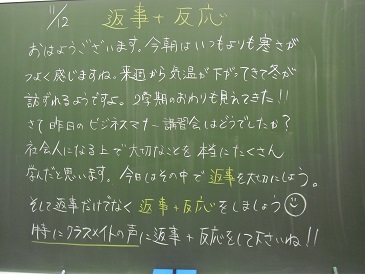 11/12 返事+反応
おはようございます。今朝はいつもよりも寒さが
つよく感じますね。来週から気温が下がってきて冬が
訪ずれるようですよ。2学期のおわりも見えてきた!!
さて昨日のビジネスマナー講習会はどうでしたか?
社会人になる上で大切なことを本当にたくさん
学んだと思います。今日はその中で返事を大切にしよう。
そして返事だけでなく返事+反応をしましょう
特にクラスメイトの声に返事+反応をして下さいね!!